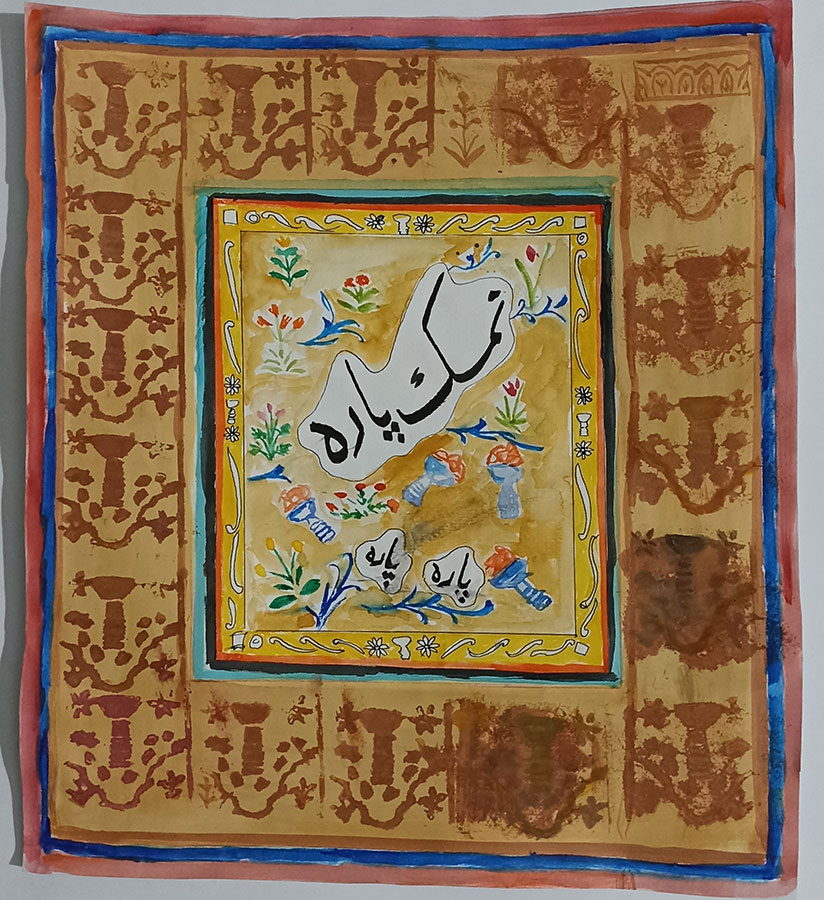 نمک پارہ
پارہ
پارہ